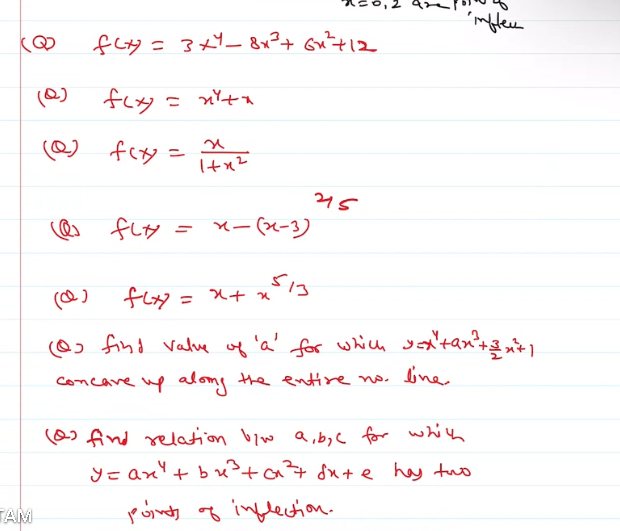 x=0,2 are point of
inflec
(Q) f(x) = 3x⁴ - 8x³ + 6x² + 12
(Q) f(x) = x⁴+x
(Q) f(x) = x/(1+x²)
(Q) f(x) = x-(x-3)^(2/5)
(Q) f(x) = x + x^(5/3)
(Q) find value of 'a' for which y=x⁴+ax³+3/2 x²+1
concave up along the entire no. line.
(Q) find relation b/w a,b,c for which
y = ax⁴ + bx³ + cx² + dx + e has two
points of inflection.
TAM